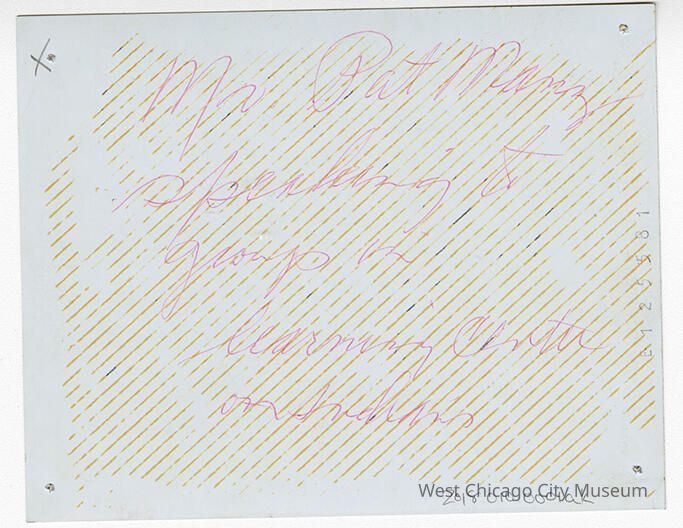 X
Mr Pat Manz
speaking to
group in
learning Center
on Indians
E125581
West Chicago City Museum